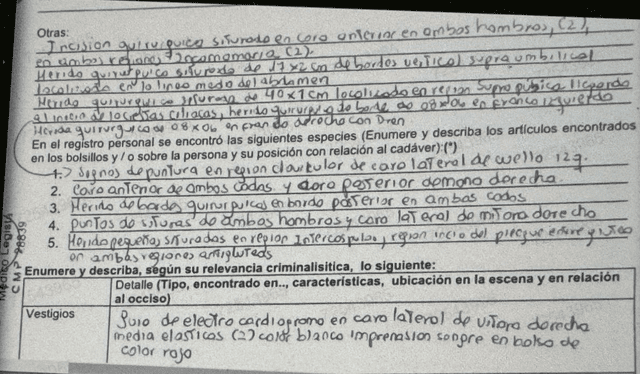 Otras:
Incision quirurquica siturado en cara anterior en ambos hombros, (2),
en ambas regiones (2).
Herida quirurquica siturada de 17x2 cm de bordes vertical supraumbilical
localizado en la linea media del abdomen
Herida quirurquica siturada de 40x1cm localizado en region supra pubica llegando
al inicio de crestas iliacas, herida quirurgica de borde de 08x06 en franco izquierdo
Herida quirurgica de 08x06 en franco derecho con Dren
En el registro personal se encontró las siguientes especies (Enumere y describa los artículos encontrados
en los bolsillos y / o sobre la persona y su posición con relación al cadáver):(*)
1. signos de puntura en region claviculor de cara lateral de cuello izq.
2. Cara anterior de ambos codos y cara posterior de mano derecha.
3. Herida de bordes quirurquicos en borde posterior en ambos codos
4. puntos de situras de ambos hombros y cara lateral de derecho
5. Herida pequeños siturados en region region incio del pliegue
en ambas regiones
Enumere y describa, según su relevancia criminalisitica, lo siguiente:
Detalle (Tipo, encontrado en.., características, ubicación en la escena y en relación
al occiso)
Vestigios
de electro cardiogromo en cara lateral de derecha
media elasticas (2) color blanco sangre en bolsa de
color rojo
Médico Legista
CMP 98839